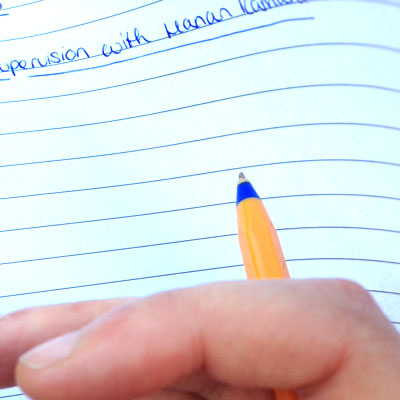 supervision with Manan